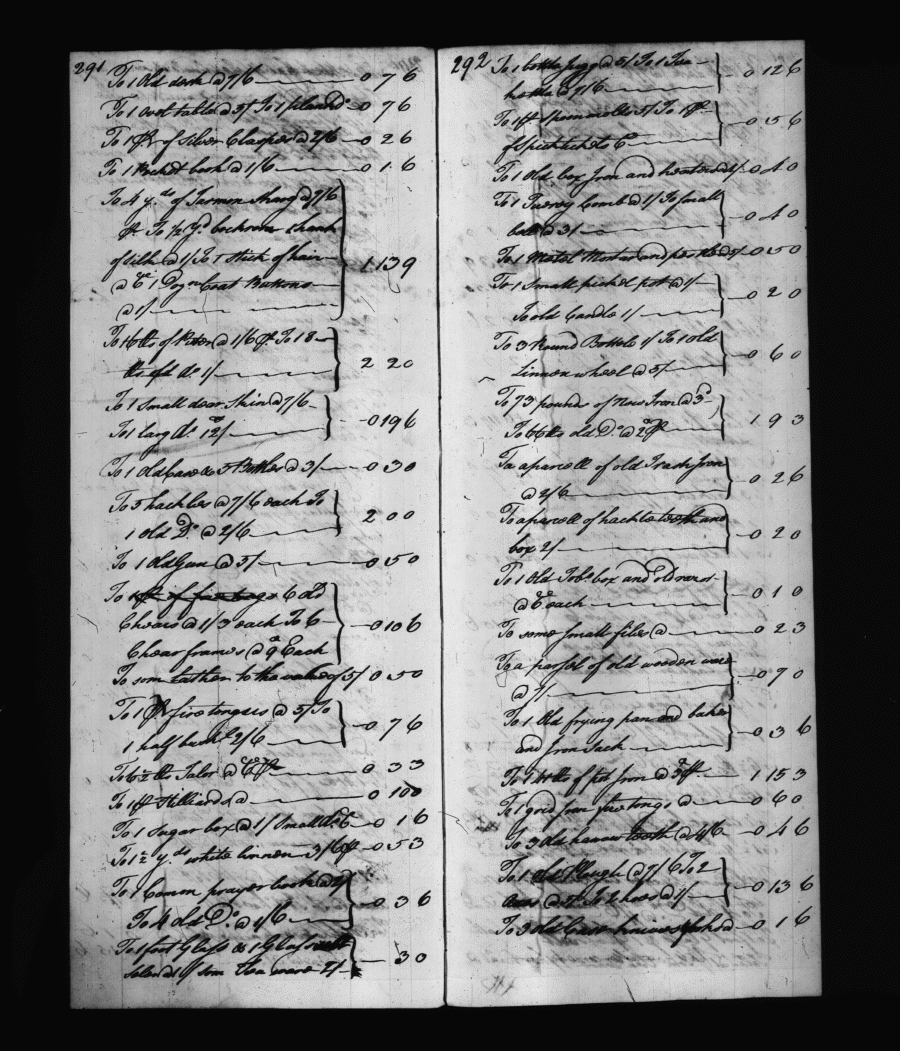 291
To 1 Old desk @ 7/6 0 7 6
To 1 ovel table @ 5/ To 1 0 7 6
To 1 pr of Silver Clasper @ 2/6 0 2 6
To 1 Pocket book @ 1/6 0 1 6
To 4 yds of @ 7/6
pr To 1/2 yd bockrom 1 hank
of silk @ 1/ To 1 Stick of hair
@ 6d 1 Dozn Coat Buttons
@ 1/ 1 13 9
To 16 lbs of @ 1/6 pr To 18
lbs old Do 1/ 2 2 0
To 1 Small dear Skin @ 7/6
To 1 larg do 12/ 0 19 6
To 1 old Case & 5 Bottles @ 3/ 0 3 0
To 5 hackles @ 7/6 each To
1 old Do @ 2/6 2 0 0
To 1 Old Gun @ 5/ 0 5 0
To 6 old
Chears @ 1/3 each To 6
Chear frames @ 9d Each 0 10 6
To som Lather to the value of 5/ 0 5 0
To 1 pr fire tongues @ 5/ To
1 half 2/6 0 7 6
To 6 1/2 lb Talor @ 6d pr 0 3 3
To 1 pr Stilliards @ 0 10 0
To 1 Sugar box @ 1/ Small do 6d 0 1 6
To 1 1/2 yds white linnen 3/6 pr 0 5 3
To 1 Comon prayer book @ 2/
To 4 old Do @ 1/6 0 3 6
To 1 foot Glass & 1 Glass
1/ som Tea ware 2/ 3 0
292
To 1 bottle Jugg @ 5/ To 1 Tea
kettle @ 7/6 0 12 6
To 1 pr Spoonmolds 5/ To 1 pr
of 6d 0 5 6
To 1 Old box Iron and heaters 4/ 0 4 0
To 1 Comb @ 1/ To Small
bell @ 3/ 0 4 0
To 1 Matal Mortar and pestle @ 5/ 0 5 0
To 1 Small pickel pot @ 1/
To old Candle 1/ 0 2 0
To 3 Round Bottels 1/ To 1 old
Linnen wheel @ 5/ 0 6 0
To 73 pounds of New Iron @ 3d
To 66 lbs old Do @ 2d pr 1 9 3
To a parcell of old Trash Iron
@ 2/6 0 2 6
To a parcell of hackle teeth and
box 2/ 0 2 0
To 1 Old Tobo box and old
@ 6d each 0 1 0
To some small files @ 0 2 3
To a parsel of old wooden ware
@ 0 9 0
To 1 Old frying pan and baker
and Iron Jack 0 3 6
To 141 lbs of pot Iron @ 3d pr 1 15 3
To 1 grid Iron fire tongs @ 0 6 0
To 3 old harrow teeth @ 4/6 0 4 6
To 1 Old Plough @ 7/6 To 2
@ To 2 hoes @ 1/ 0 13 6
To 3 old 0 1 6